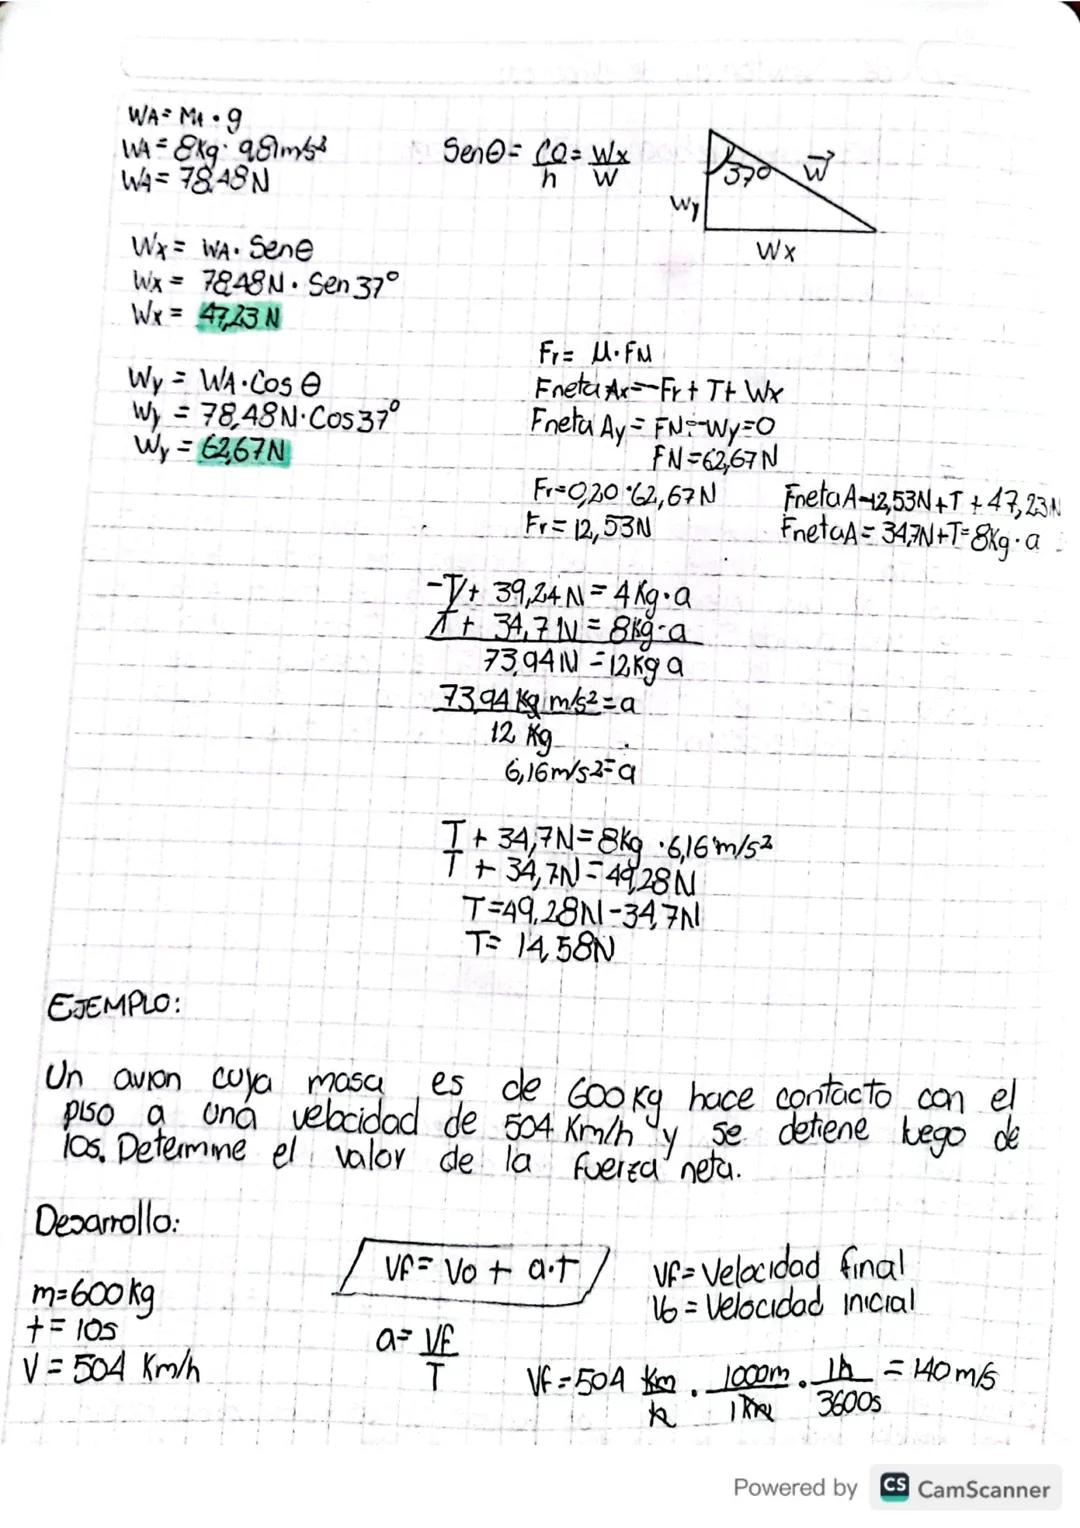 WA = MA · g
WA = 8Kg · 9,81m/s²
WA = 78,48N
Senθ = CO/h = Wx/W
37°
W
Wy
Wx
Wx = WA · Senθ
Wx = 78,48N · Sen 37°
Wx = 47,23 N
Wy = WA · Cos θ
Wy = 78,48N · Cos 37°
Wy = 62,67N
Fr = μ · FN
Fneta Ax = -Fr + T + Wx
Fneta Ay = FN - Wy = 0
FN = 62,67 N
Fr = 0,20 · 62,67N
Fr = 12,53N
Fneta A -12,53N + T + 47,23N
Fneta A = 34,7N + T = 8Kg · a
-T + 39,24 N = 4 Kg · a
T + 34,7 N = 8Kg · a
73,94 N = 12 Kg a
73,94 Kg m/s² = a
12 Kg
6,16 m/s² = a
T + 34,7N = 8Kg · 6,16 m/s²
T + 34,7N = 49,28 N
T = 49,28N - 34,7N
T = 14,58N
EJEMPLO:
Un avion cuya masa es de 600 Kg hace contacto con el
piso a una velocidad de 504 Km/h y se detiene luego de
10s. Determine el valor de la fuerza neta.
Desarrollo:
m = 600 Kg
t = 10s
V = 504 Km/h
Vf = Vo + a·t
a = Vf/T
Vf = Velocidad final
Vo = Velocidad inicial
Vf = 504 Km/h · 1000m/1Km · 1h/3600s = 140 m/s
Powered by CS CamScanner